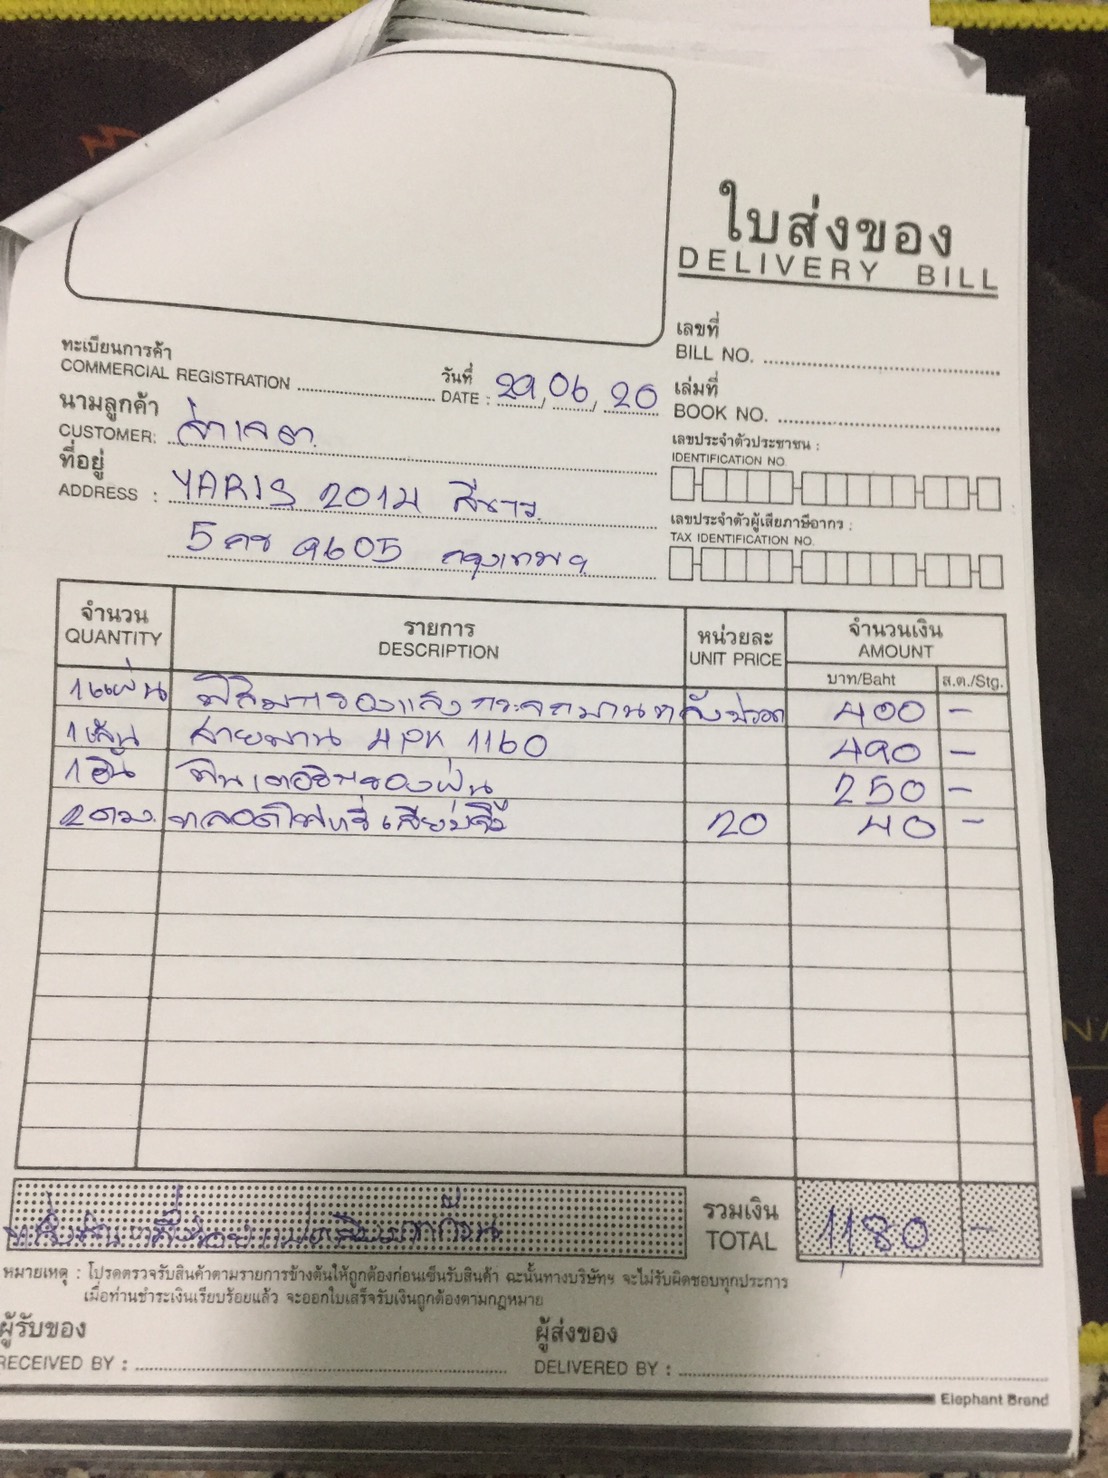 ใบส่งของ
DELIVERY BILL
เลขที่
BILL NO.
ทะเบียนการค้า
COMMERCIAL REGISTRATION
วันที่
DATE : 29, 06, 20
เล่มที่
BOOK NO.
นามลูกค้า
CUSTOMER:
เลขประจำตัวประชาชน :
IDENTIFICATION NO.
ที่อยู่
ADDRESS : YARIS 2014 สีขาว
5 กช 9605 กรุงเทพฯ
เลขประจำตัวผู้เสียภาษีอากร :
TAX IDENTIFICATION NO.
จำนวน
QUANTITY
รายการ
DESCRIPTION
หน่วยละ
UNIT PRICE
จำนวนเงิน
AMOUNT
บาท/Baht ส.ต./Stg.
1 แผ่น ฟิล์มกรองแสงกระจกบาน 400 -
1 เส้น สายพาน 4PK 1160 490 -
1 อัน 250 -
2 ดวง หลอดไฟหรี่เสียบ 20 40 -
รวมเงิน
TOTAL 1180 -
หมายเหตุ : โปรดตรวจรับสินค้าตามรายการข้างต้นให้ถูกต้องก่อนเซ็นรับสินค้า ฉะนั้นทางบริษัทฯ จะไม่รับผิดชอบทุกประการ
เมื่อท่านชำระเงินเรียบร้อยแล้ว จะออกใบเสร็จรับเงินถูกต้องตามกฎหมาย
ผู้รับของ
RECEIVED BY :
ผู้ส่งของ
DELIVERED BY :
Elephant Brand